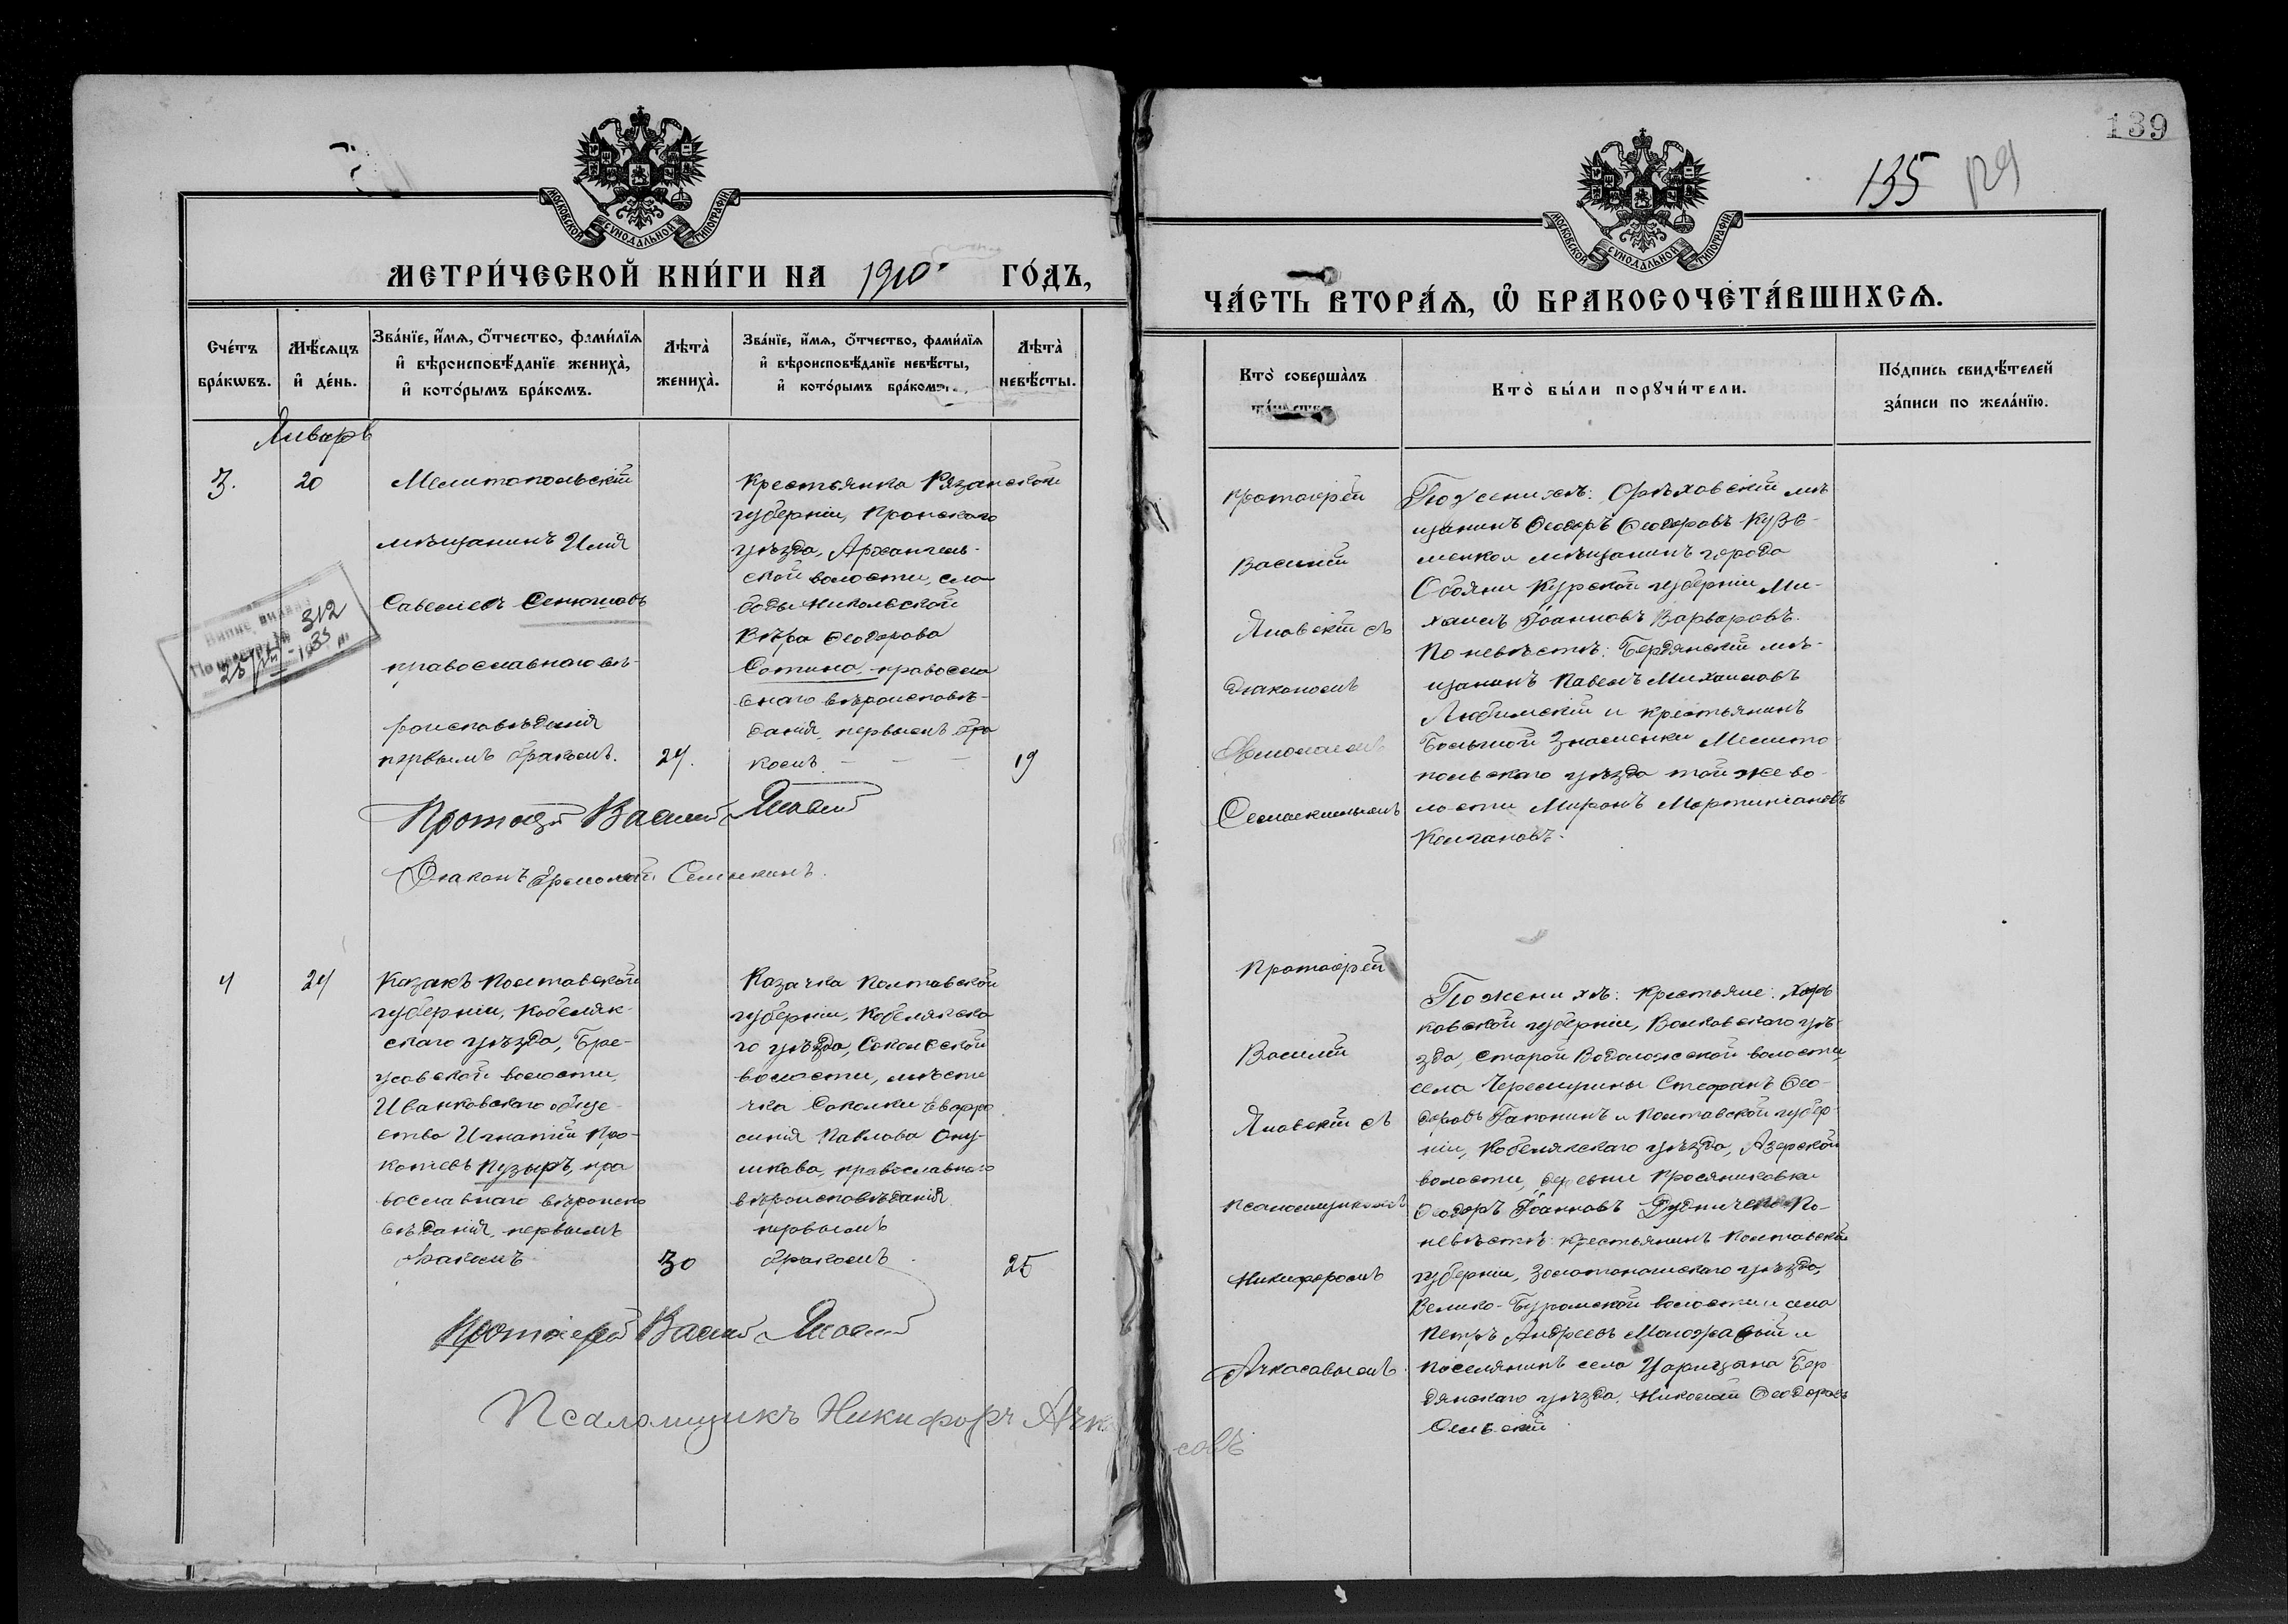 139
135
МОСКОВСКОЙ СѴНОДАЛЬНОЙ ТИПОГРАФІИ
МОСКОВСКОЙ СѴНОДАЛЬНОЙ ТИПОГРАФІИ
МЕТРИ́ЧЕСКОЙ КНИ́ГИ НА 1910 ГО́ДЪ,
Сче́тъ бра́кѡвъ.
Мѣ́сѧцъ и҆ де́нь.
Зва́нїе, и҆́мѧ, ѻ҆́тчество, фами́лїѧ
и҆ вѣроисповѣ́данїе жениха̀,
и҆ кото́рымъ бра́комъ.
Лѣта̀ жениха̀.
Зва́нїе, и҆́мѧ, ѻ҆́тчество, фами́лїѧ
и҆ вѣроисповѣ́данїе невѣ́сты,
и҆ кото́рымъ бра́комъ.
Лѣта̀ невѣ́сты.
Январь
3.
20
Мелитопольскій
мѣщанинъ Илія
Савеліевъ Сенюшовъ
православнаго вѣ-
роисповѣданія
первымъ бракомъ.
24.
Крестьянка Рязанской
губерніи, Пронскаго
уѣзда, Архангель-
ской волости, сло-
боды Никольской
Вѣра Ѳеодорова
Сотина, правосла
внаго вѣроисповѣ-
данія, первымъ бра
комъ. – – –
19
312
Протоіерей Василій Яновскій
Діаконъ Ермолай Семыкинъ.
4
24
Казакъ Полтавской
губерніи, Кобеляк-
скаго уѣзда, Бре-
усовской волости,
Иванковскаго обще-
ства Игнатій Про-
копіевъ Пузырь, пра
вославнаго вѣроиспо
вѣданія, первымъ
бракомъ
30
Казачка Полтавской
губерніи, Кобелякска
го уѣзда, Сокольской
волости, мѣсте
чка Соколки Евфро
синія Павлова Ону-
шкова, православнаго
вѣроисповѣданія
первымъ
бракомъ
25
Протоіерей Василій Яновскій
Псаломщикъ Никифоръ Ачкасовъ
ЧА́СТЬ ВТОРА́Ѧ, Ѽ БРАКОСОЧЕТА́ВШИХСѦ.
Кто̀ соверша́лъ
Кто̀ бы́ли порꙋчи́тели.
По́дпись свидѣ́телей
за́писи по жела́нїю.
Протоіерей
Василій
Яновскій съ
діакономъ
Ермолаемъ
Семыкинымъ
По женихѣ: Орѣховскій мѣ
щанинъ Ѳеодоръ Ѳеодоровъ Кузь-
менко и мѣщанинъ города
Обояни Курской губерніи Ми-
хаилъ Іоанновъ Варваровъ.
По невѣстѣ: Бердянскій мѣ-
щанинъ Павелъ Михаиловъ
Любимскій и крестьянинъ
Большой Знаменки Мелито
польскаго уѣзда той же во-
лости Миронъ Мартиніановъ
Колгановъ.
Протоіерей
Василій
Яновскій съ
псаломщикомъ
Никифоромъ
Ачкасовымъ.
По женихѣ: крестьяне: Харь
ковской губерніи, Волковскаго уѣ
зда, Старой Водолажской волости
села Черемушны Стефанъ Ѳео-
доровъ Гапонинъ и Полтавской губер-
ніи, Кобелякскаго уѣзда, Азерской
волости, деревни Просяниковки
Ѳеодоръ Іоанновъ Дудниченко По-
невѣстѣ: крестьянинъ Полтавской
губерніи, Золотоношскаго уѣзда,
Велико-Буромской волости и села
Петръ Андреевъ и
поселянинъ села Царицына Бер
дянскаго уѣзда, Николай Ѳеодоровъ